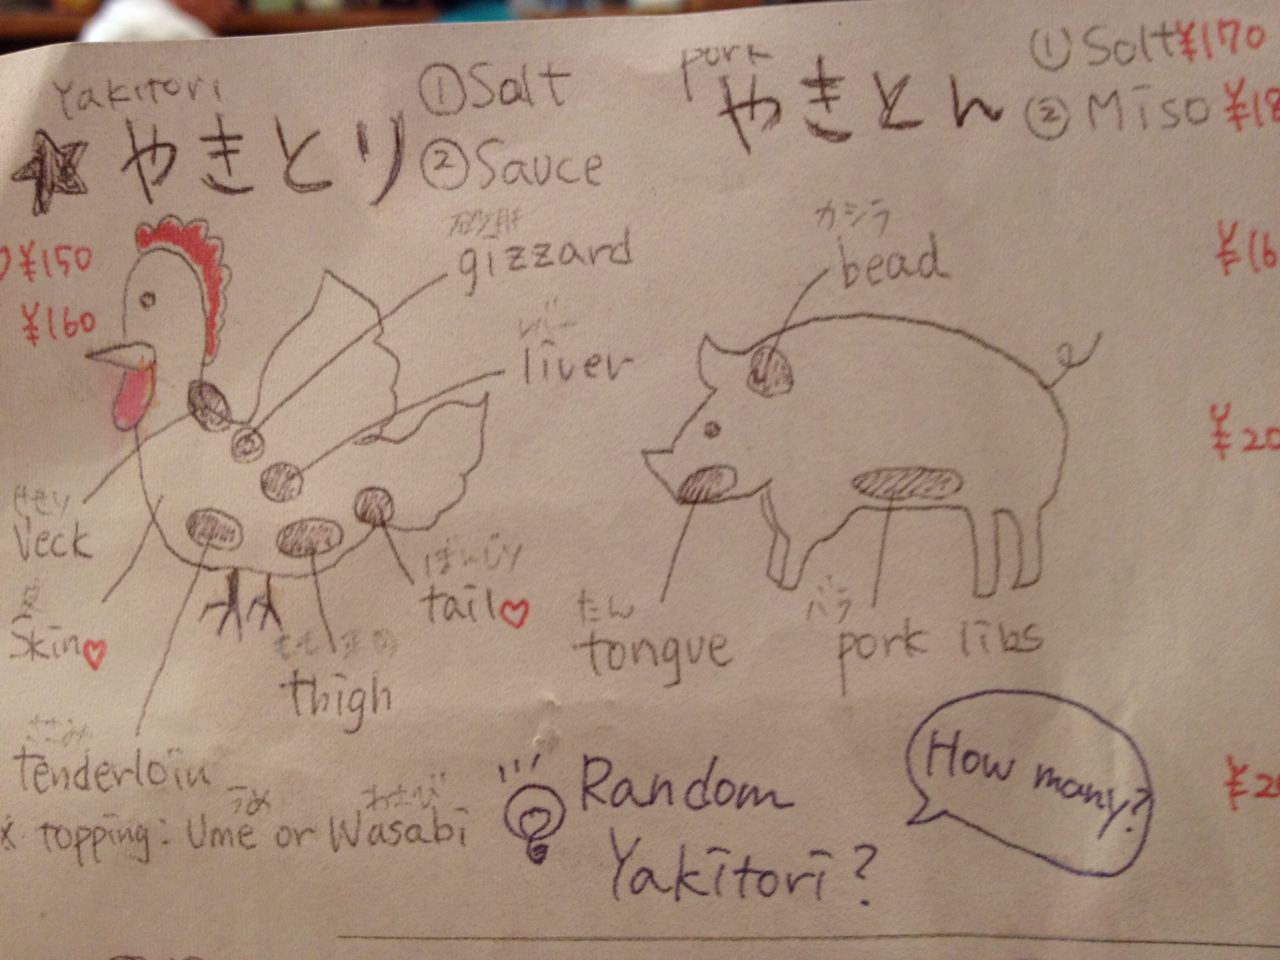 Yakitori
★ やきとり
① Salt
② Sauce
¥150
¥160
砂肝
gizzard
レバー
liver
せせり
Neck
皮
Skin♡
ささみ
tenderloin
もも正肉
thigh
ぼんじり
tail♡
うめ わさび
※ topping: Ume or Wasabi
pork
やきとん
① Salt ¥170
② Miso
カシラ
bead
たん
tongue
バラ
pork libs
Random
Yakitori?
How many?